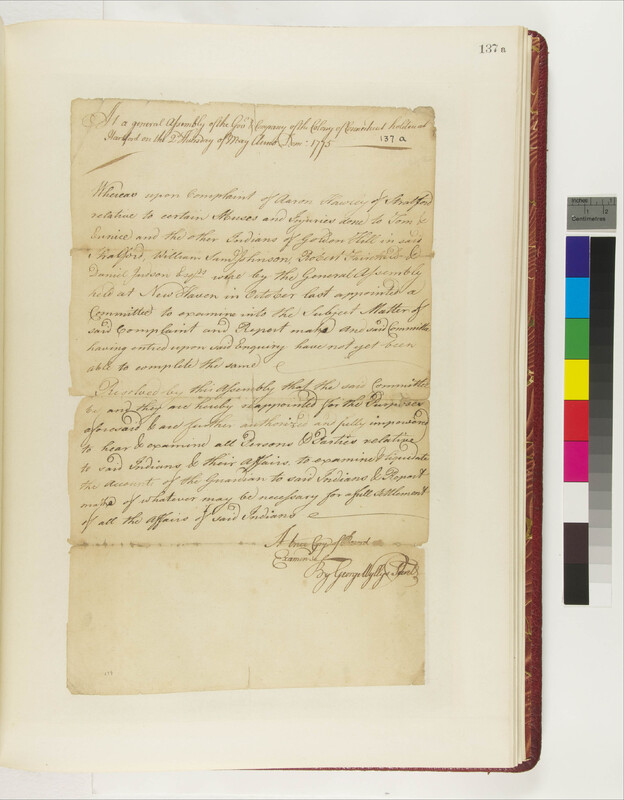 137 B
At a general Assembly of the Govr & Company of the Colony of Connecticut holden at
Hartford on the 2d Thursday of May Anno Dom: 1775
137 a
Whereas upon Complaint of Aaron Hawley of Stratford
relative to certain Abuses and Injuries done to Tom &
Eunice and the other Indians of Golden Hill in said
Stratford, William Saml Johnson, Robert Fairchild &
Daniel Judson Esqrs were by the General Assembly
held at New Haven in October last appointed a
Committee to examine into the Subject Matter of
said Complaint and Report make and said Committee
having entred upon said Enquiry have not yet been
able to complete the same
Resolved by this Assembly that the said Committee
be and they are hereby reappointed for the Purposes
aforesaid & are further authorized and fully impowered
to hear & examine all Persons & Parties relative
to said Indians & their Affairs to examine & liquidate
the Account of the Guardian to said Indians & Report
make of whatever may be necessary for a full Settlement
of all the Affairs of said Indians
A true Copy of Record
Examind
By George Wyllys Secrety
Inches
1 2
Centimetres